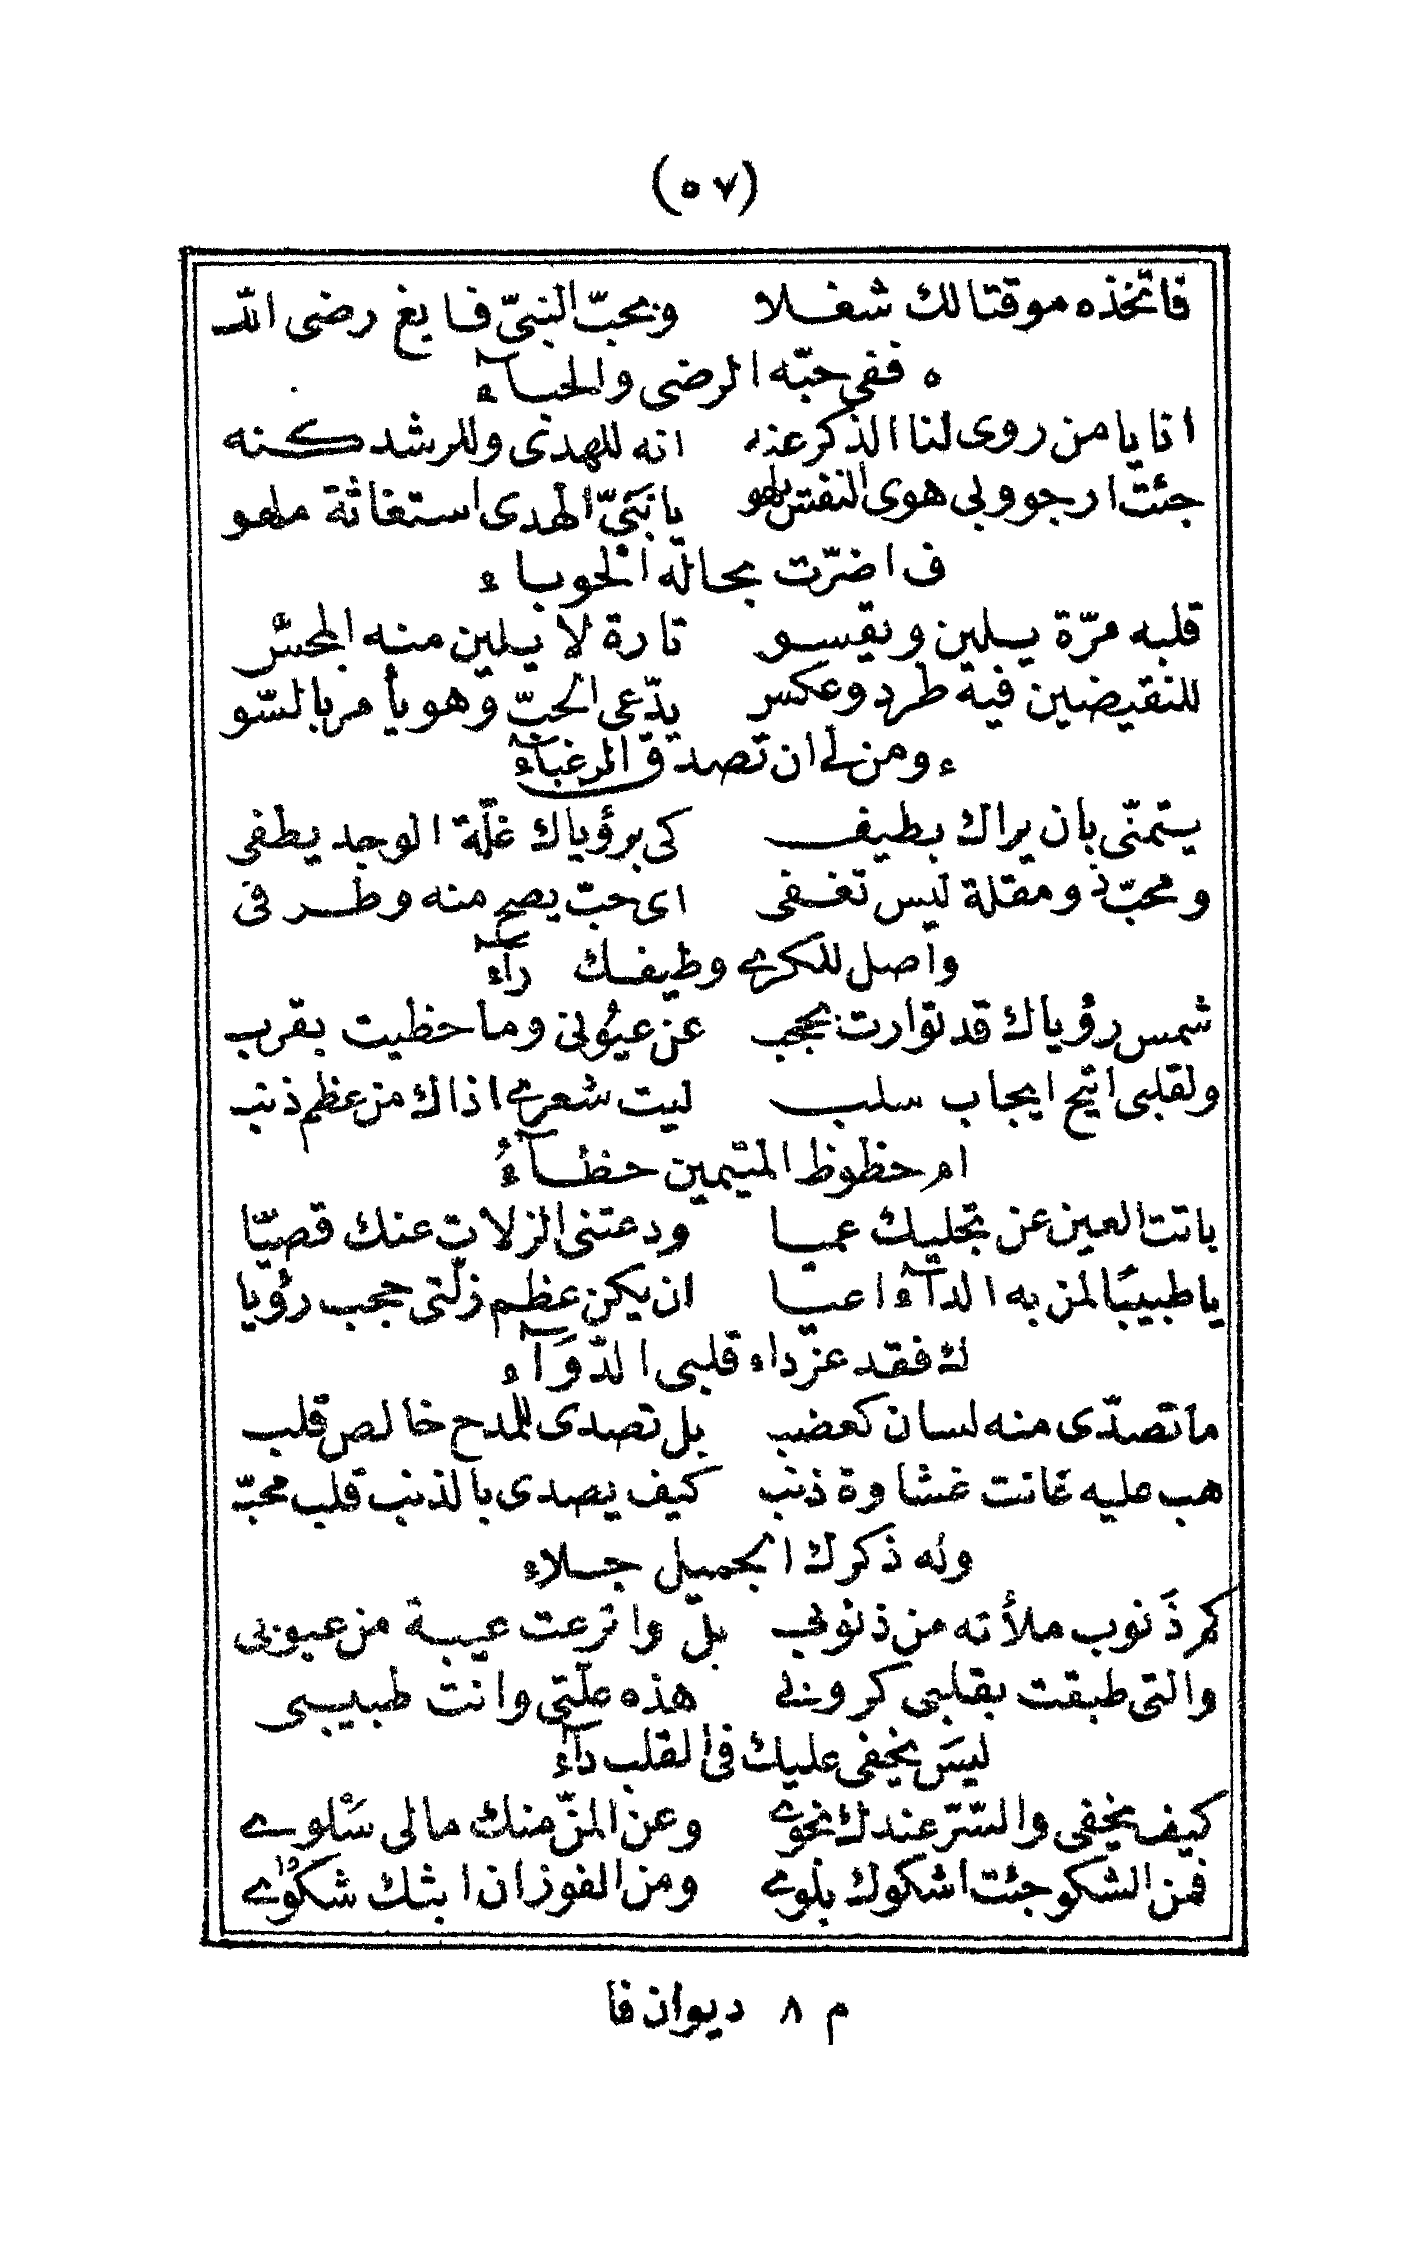 (٥٧)
فاتخذه موقتا لك شغلا وبحبّ النبيّ فابغ رضى اللـ
ه ففى حبّه الرضى والحباء
انا يا من روى لنا الذكر عنه انه للهدى وللرشد كنه
جئت ارجو وبى هوى النفس يلهو يا نبيّ الهدى استغاثة ملهو
ف اضرّت بحاله الحوباء
قلبه مرّة يلين ويقسو تارة لا يلين منه المجسّ
للنقيضين فيه طرد وعكس يدّعى الحبّ وهو يأمر بالسّو
ء ومن لى ان تصدق الرغباء
يتمنّى بان يراك بطيف كى برؤياك غلّة الوجد يطفى
ومحبّ ذو مقلة ليس تغفى اى حبّ يصح منه وطرفى
واصل للكرى وطيفك راء
شمس رؤياك قد توارت بحجب عن عيونى وما حظيت بقرب
ولقلبى اتيح ايجاب سلب ليت شعرى اذاك من عظم ذنب
ام حظوظ المتيمين حظاء
باتت العين عن تجليك عميا ودعتنى الزلات عنك قصيّا
يا طبيبا لمن به الداء اعيا ان يكن عظم زلّتى حجب رؤيا
ك فقد عزّ داء قلبى الدّواء
ما تصدّى منه لسان كعضب بل تصدى للمدح خالص قلب
هب عليه غانت غشاوة ذنب كيف يصدى بالذنب قلب محبّ
وله ذكرك الجميل جلاء
كم ذنوب ملأته من ذنوبى بل واترعت عيبة من عيوبى
والتى طبقت بقلبى كرونى هذه علّتى وانت طبيبى
ليس يخفى عليك فى القلب داء
كيف يخفى والسّر عندك نحوى وعن المنّ منك مالى سلوى
فمن الشكو جئت اشكوك بلوى ومن الفوز ان ابثك شكوى
م ٨ ديوان فا